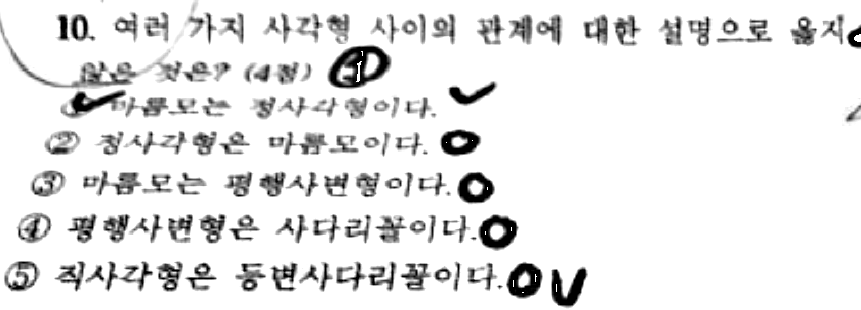 10. 여러 가지 사각형 사이의 관계에 대한 설명으로 옳지
않은 것은? (4점) ①
① 마름모는 정사각형이다.
② 정사각형은 마름모이다. O
③ 마름모는 평행사변형이다. O
④ 평행사변형은 사다리꼴이다. O
⑤ 직사각형은 등변사다리꼴이다. O